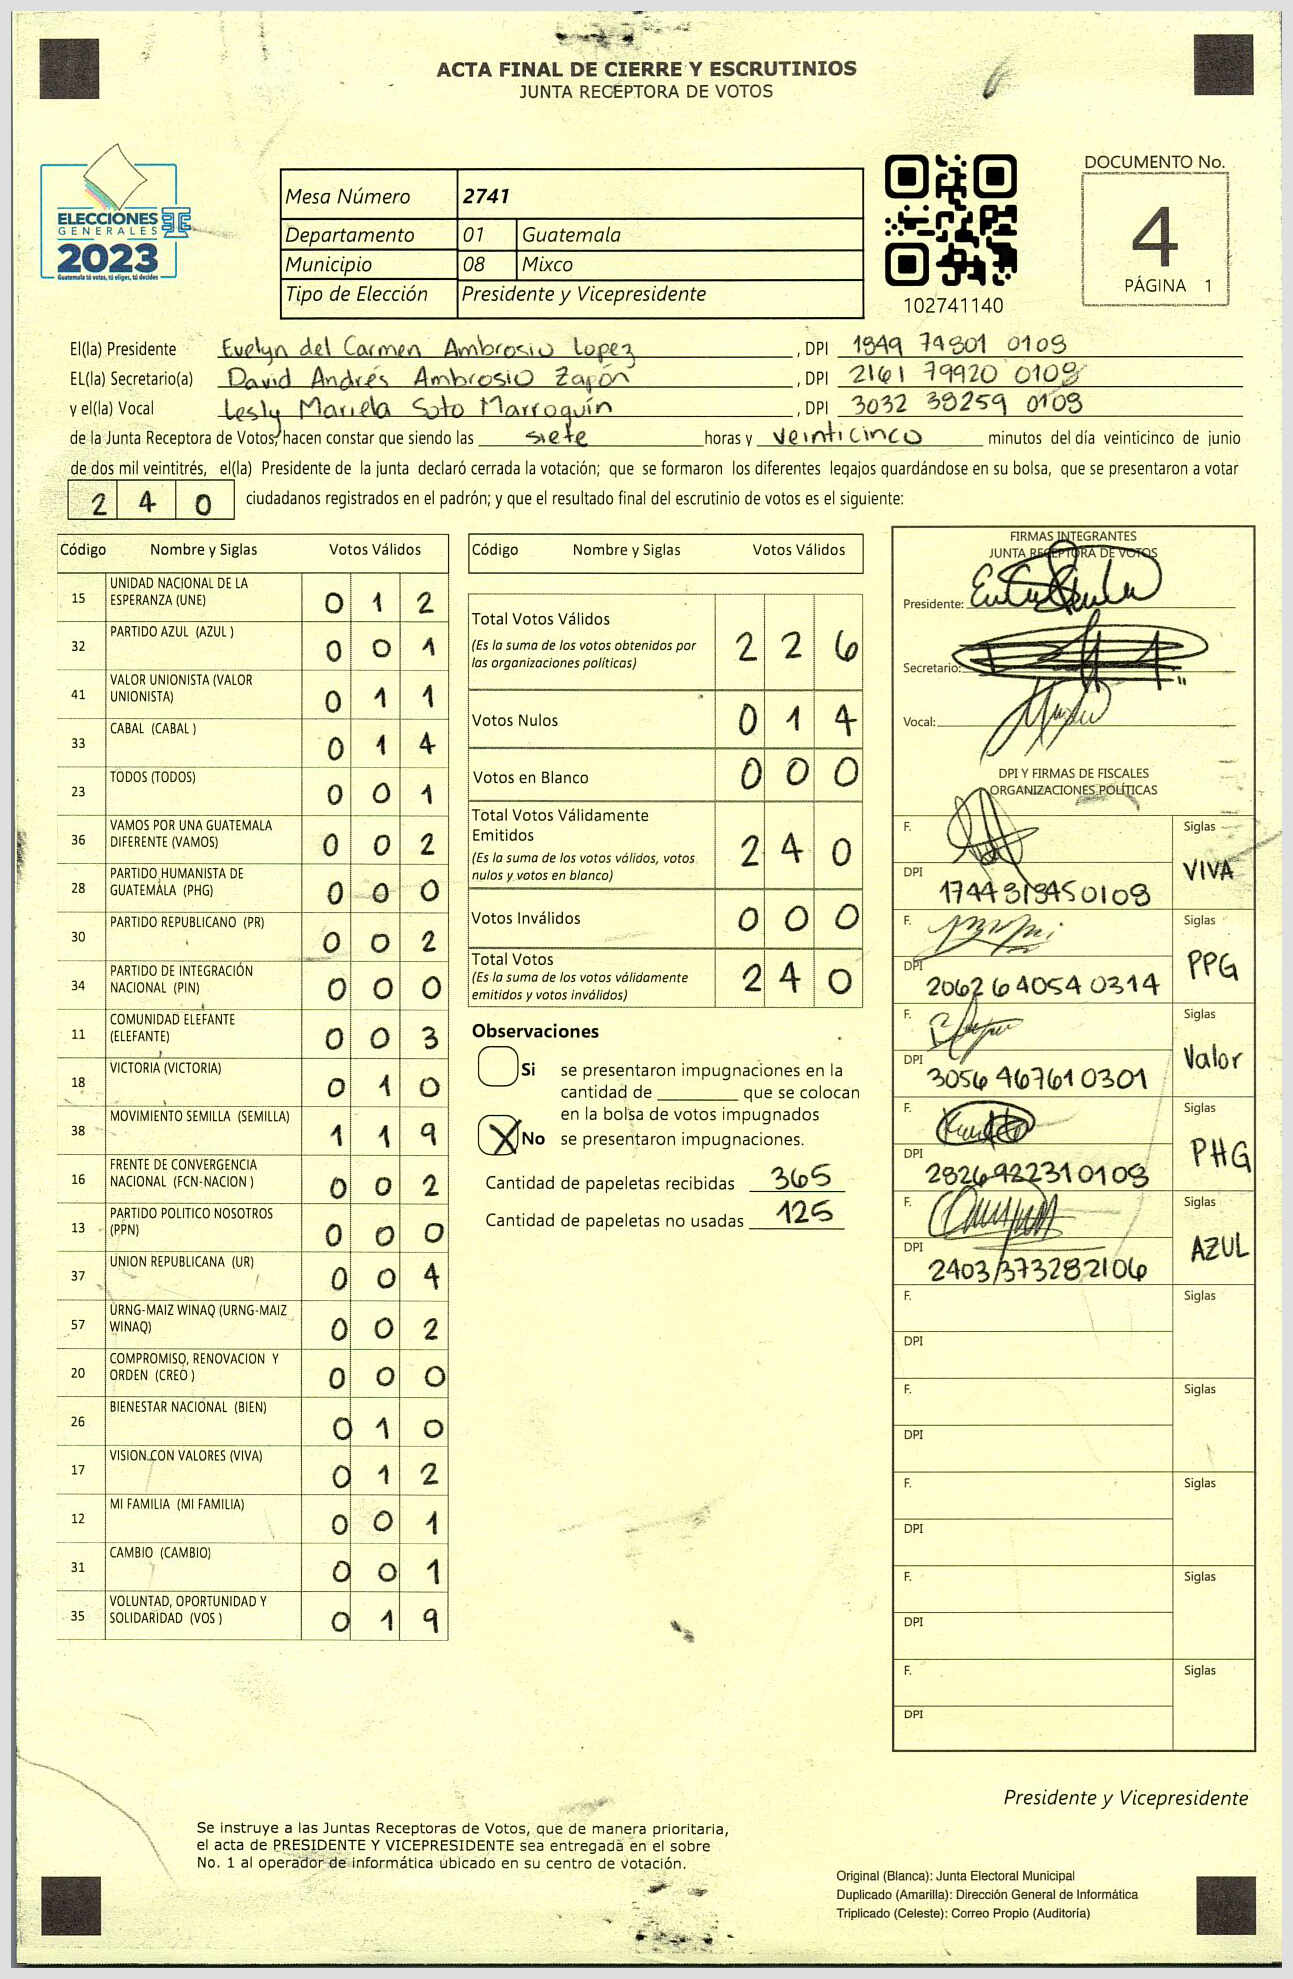 ACTA FINAL DE CIERRE Y ESCRUTINIOS
JUNTA RECEPTORA DE VOTOS
ELECCIONES
GENERALES
2023
Guatemala tú votas, tú eliges, tú decides
Mesa Número 2741
Departamento 01 Guatemala
Municipio 08 Mixco
Tipo de Elección Presidente y Vicepresidente
102741140
DOCUMENTO No.
4
PÁGINA 1
El(la) Presidente Evelyn del Carmen Ambrosio Lopez, DPI 1849 74801 0108
EL(la) Secretario(a) David Andrés Ambrosio Zapón, DPI 2161 79920 0108
y el(la) Vocal Lesly Mariela Soto Marroquín, DPI 3032 38259 0108
de la Junta Receptora de Votos, hacen constar que siendo las siete horas y veinticinco minutos del día veinticinco de junio
de dos mil veintitrés, el(la) Presidente de la junta declaró cerrada la votación; que se formaron los diferentes legajos guardándose en su bolsa, que se presentaron a votar
2 4 0 ciudadanos registrados en el padrón; y que el resultado final del escrutinio de votos es el siguiente:
Código Nombre y Siglas Votos Válidos
15 UNIDAD NACIONAL DE LA ESPERANZA (UNE) 0 1 2
32 PARTIDO AZUL (AZUL ) 0 0 1
41 VALOR UNIONISTA (VALOR UNIONISTA) 0 1 1
33 CABAL (CABAL ) 0 1 4
23 TODOS (TODOS) 0 0 1
36 VAMOS POR UNA GUATEMALA DIFERENTE (VAMOS) 0 0 2
28 PARTIDO HUMANISTA DE GUATEMALA (PHG) 0 0 0
30 PARTIDO REPUBLICANO (PR) 0 0 2
34 PARTIDO DE INTEGRACIÓN NACIONAL (PIN) 0 0 0
11 COMUNIDAD ELEFANTE (ELEFANTE) 0 0 3
18 VICTORIA (VICTORIA) 0 1 0
38 MOVIMIENTO SEMILLA (SEMILLA) 1 1 9
16 FRENTE DE CONVERGENCIA NACIONAL (FCN-NACION ) 0 0 2
13 PARTIDO POLITICO NOSOTROS (PPN) 0 0 0
37 UNION REPUBLICANA (UR) 0 0 4
57 URNG-MAIZ WINAQ (URNG-MAIZ WINAQ) 0 0 2
20 COMPROMISO, RENOVACION Y ORDEN (CREO ) 0 0 0
26 BIENESTAR NACIONAL (BIEN) 0 1 0
17 VISION CON VALORES (VIVA) 0 1 2
12 MI FAMILIA (MI FAMILIA) 0 0 1
31 CAMBIO (CAMBIO) 0 0 1
35 VOLUNTAD, OPORTUNIDAD Y SOLIDARIDAD (VOS ) 0 1 9
Código Nombre y Siglas Votos Válidos
Total Votos Válidos 2 2 6
(Es la suma de los votos obtenidos por
las organizaciones políticas)
Votos Nulos 0 1 4
Votos en Blanco 0 0 0
Total Votos Válidamente
Emitidos 2 4 0
(Es la suma de los votos válidos, votos
nulos y votos en blanco)
Votos Inválidos 0 0 0
Total Votos 2 4 0
(Es la suma de los votos válidamente
emitidos y votos inválidos)
Observaciones
Si se presentaron impugnaciones en la
cantidad de ________ que se colocan
en la bolsa de votos impugnados
X No se presentaron impugnaciones.
Cantidad de papeletas recibidas 365
Cantidad de papeletas no usadas 125
FIRMAS INTEGRANTES
JUNTA RECEPTORA DE VOTOS
Presidente:
Secretario:
Vocal:
DPI Y FIRMAS DE FISCALES
ORGANIZACIONES POLÍTICAS
F. Siglas
VIVA
DPI 1744 81845 0108
F. Siglas
PPG
DPI 2062 64054 0314
F. Siglas
Valor
DPI 3056 46761 0301
F. Siglas
PHG
DPI 2826 92231 0108
F. Siglas
AZUL
DPI 2403/373282106
F. Siglas
DPI
F. Siglas
DPI
F. Siglas
DPI
F. Siglas
DPI
F. Siglas
DPI
Presidente y Vicepresidente
Se instruye a las Juntas Receptoras de Votos, que de manera prioritaria,
el acta de PRESIDENTE Y VICEPRESIDENTE sea entregada en el sobre
No. 1 al operador de informática ubicado en su centro de votación.
Original (Blanca): Junta Electoral Municipal
Duplicado (Amarilla): Dirección General de Informática
Triplicado (Celeste): Correo Propio (Auditoría)